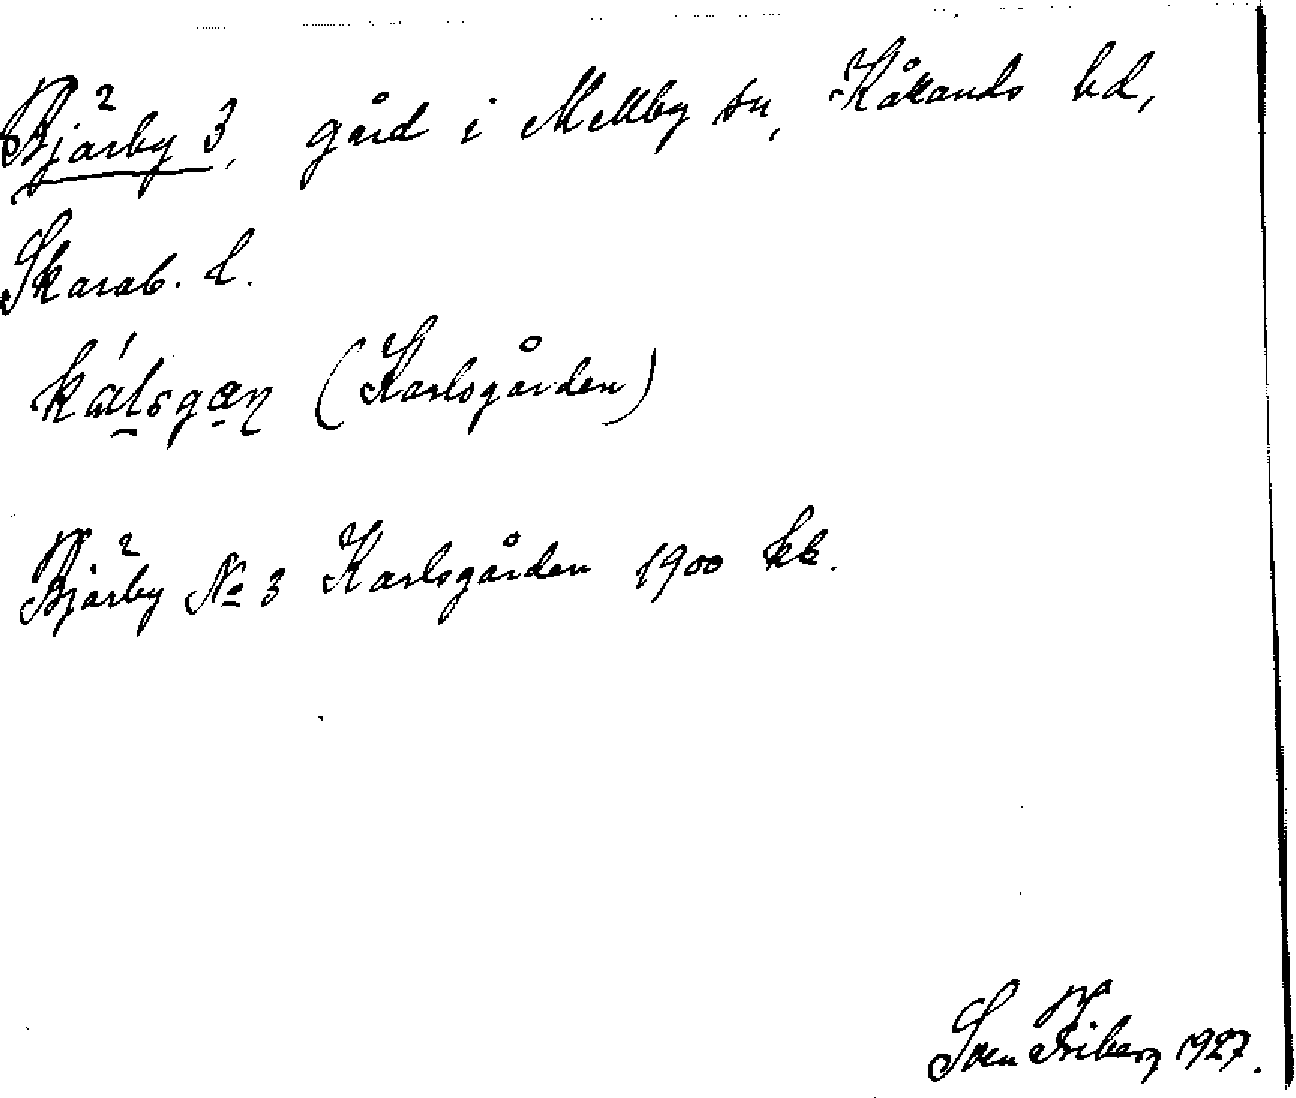 Bjärby 3, gård i Mellby sn, Kållands hd,
Skarab. l.
(Karlsgården)
Bjärby No 3 Karlsgården 1900 kb.
Sven Friberg 1927.